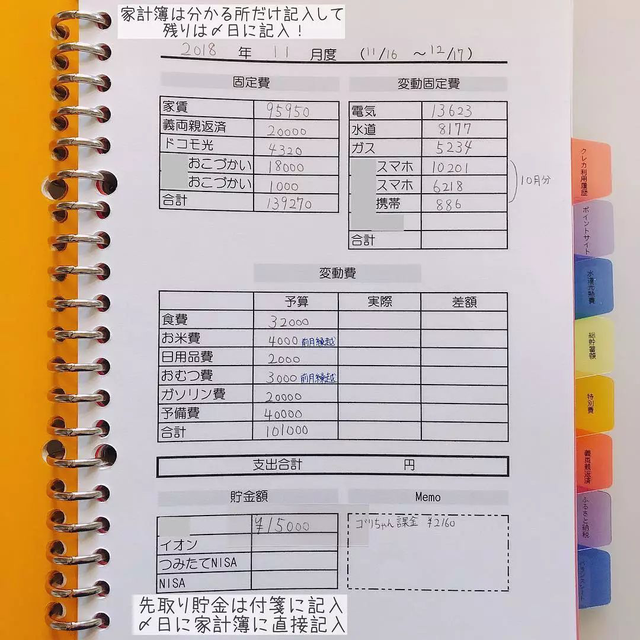 家計簿は分かる所だけ記入して
残りは〆日に記入！
2018 年 11 月度 (11/16 ～12/17)
固定費
家賃 95950
義両親返済 20000
ドコモ光 4320
おこづかい 18000
おこづかい 1000
合計 139270
変動固定費
電気 13623
水道 8177
ガス 5234
スマホ 10201
スマホ 6218
携帯 886
10月分
合計
変動費
予算 実際 差額
食費 32000
お米費 4000 前月繰越
日用品費 2000
おむつ費 3000 前月繰越
ガソリン費 20000
予備費 40000
合計 101000
支出合計 円
貯金額
¥15000
イオン
つみたてNISA
NISA
Memo
ゴリちゃん課金 ¥2160
先取り貯金は付箋に記入
〆日に家計簿に直接記入
クレカ利用履歴
ポイントサイト
水道光熱費
総貯蓄額
特別費
義両親返済
ふるさと納税